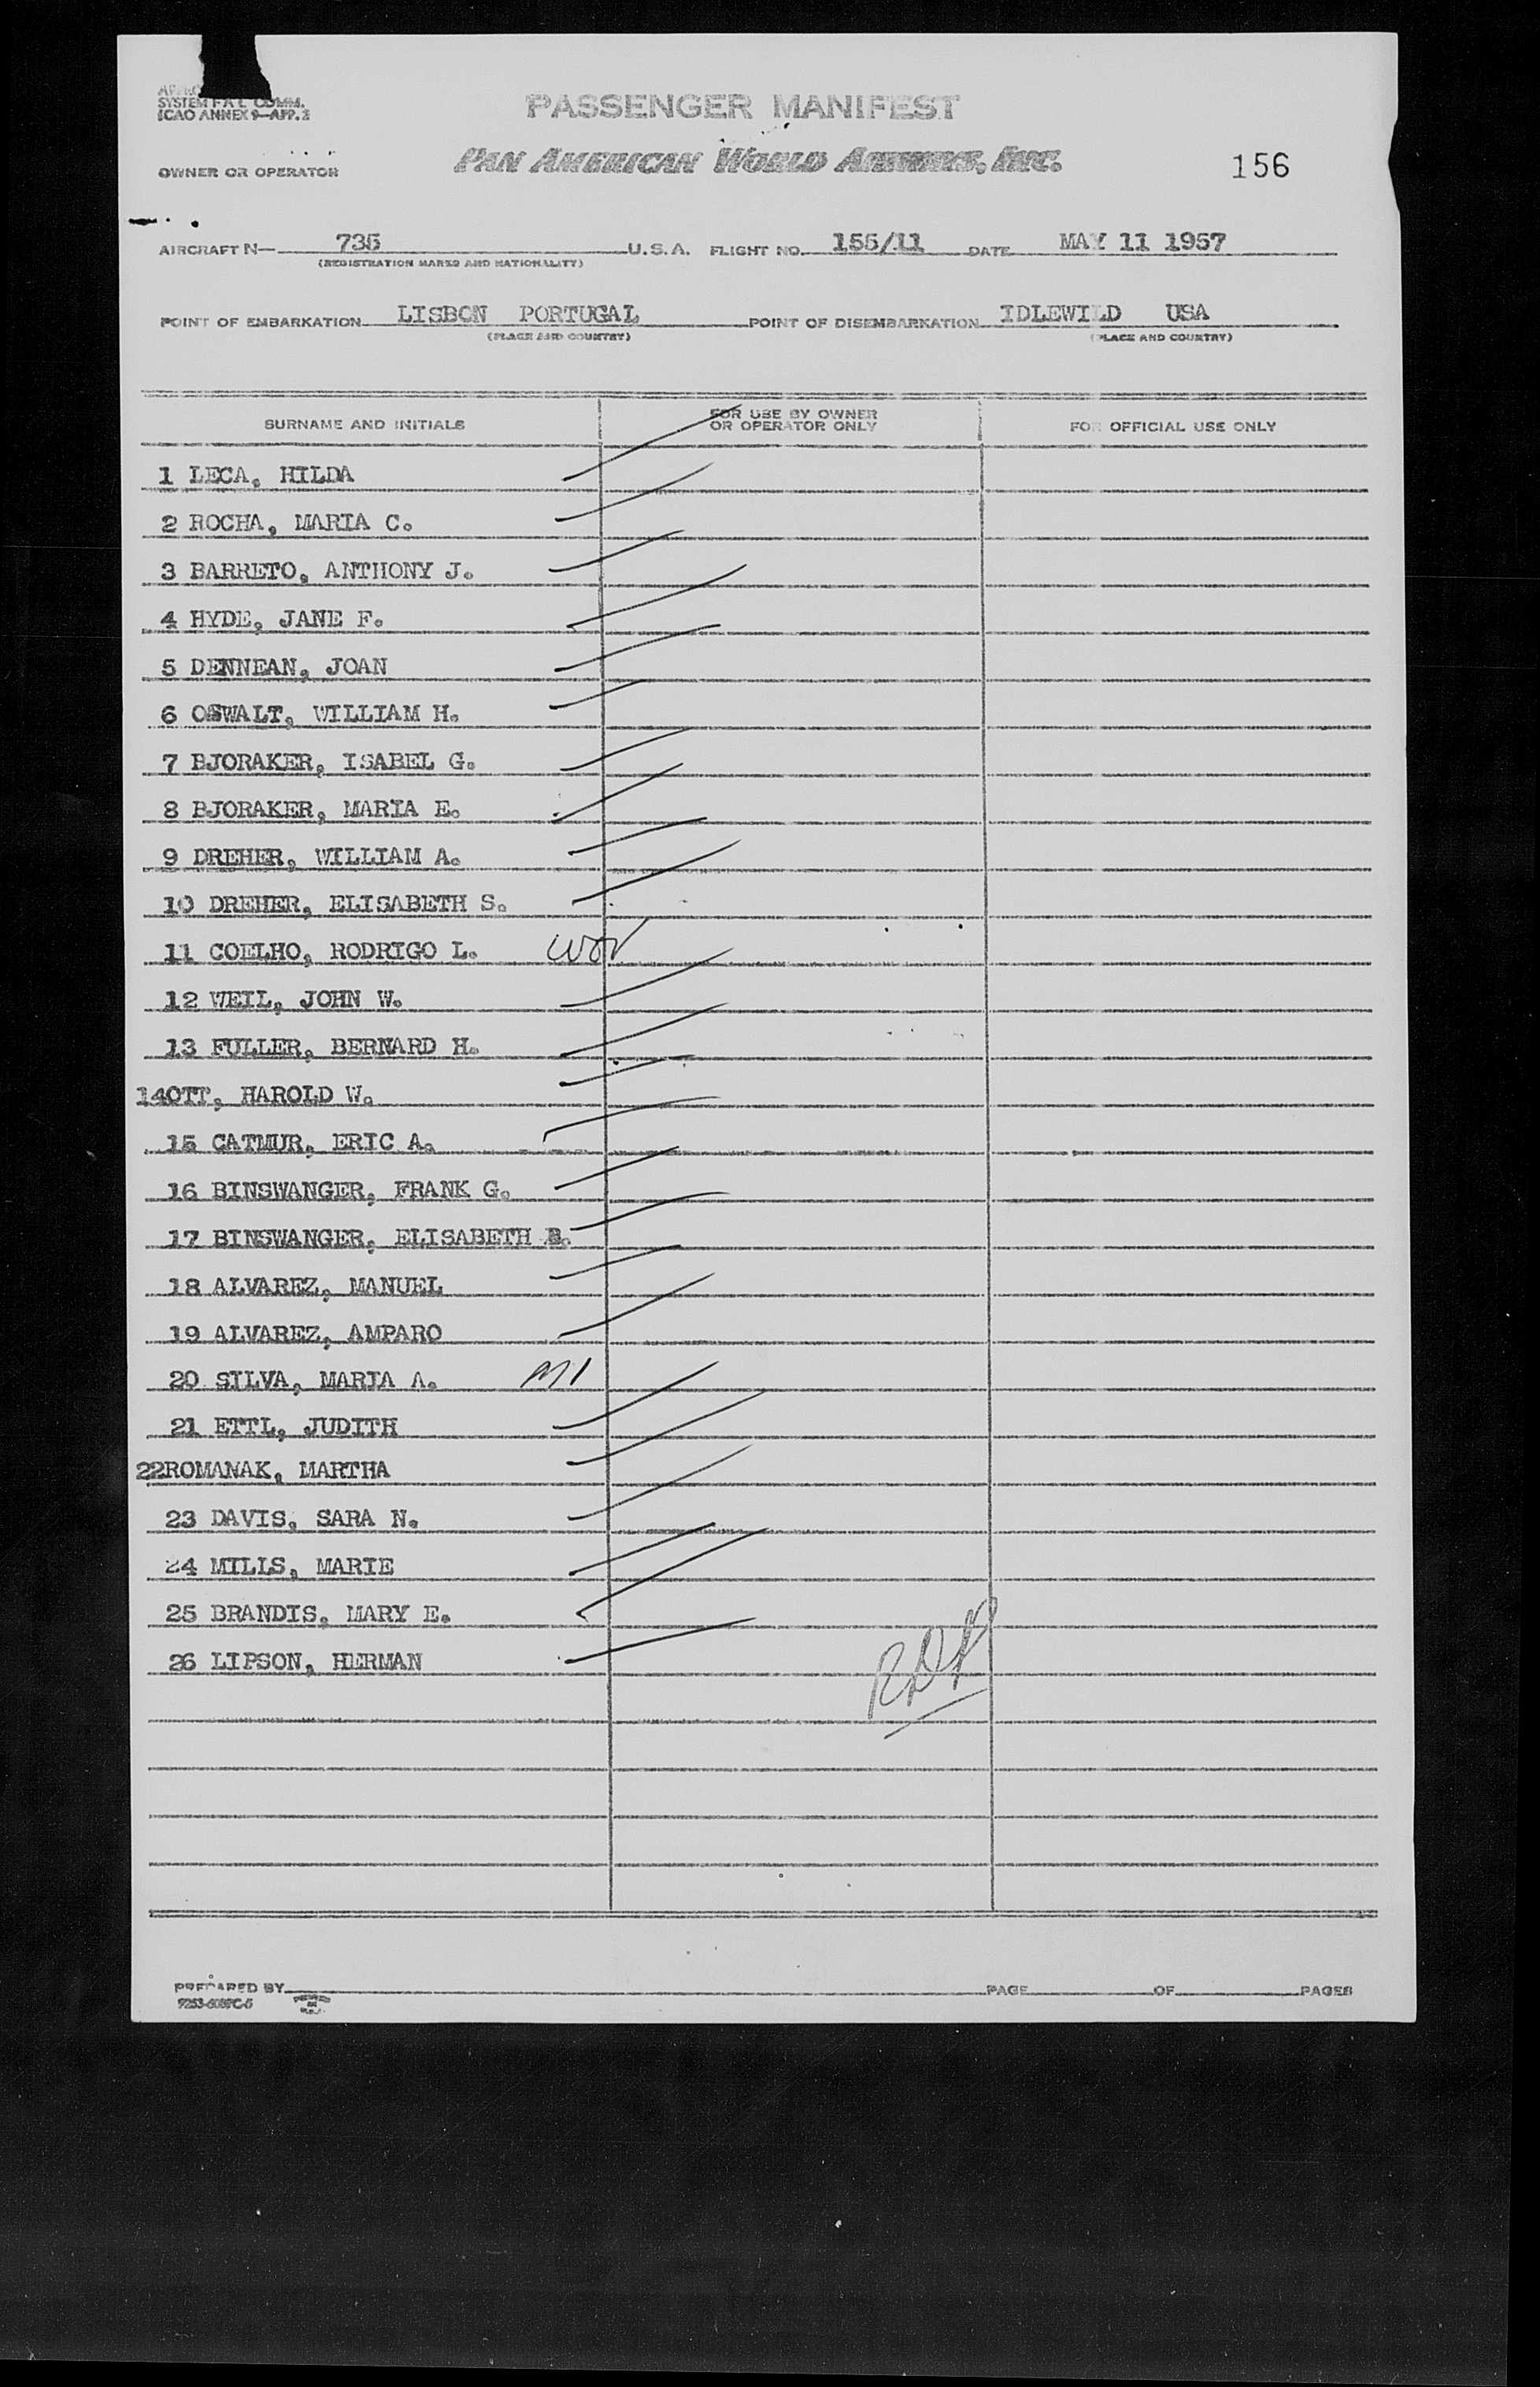 SYSTEM F A L COMM.
ICAO ANNEX 9—APP. 2
PASSENGER MANIFEST
PAN AMERICAN WORLD AIRWAYS, INC.
OWNER OR OPERATOR
156
AIRCRAFT N— 735 U.S.A. FLIGHT NO. 155/11 DATE MAY 11 1957
(REGISTRATION MARKS AND NATIONALITY)
POINT OF EMBARKATION LISBON PORTUGAL POINT OF DISEMBARKATION IDLEWILD USA
(PLACE AND COUNTRY) (PLACE AND COUNTRY)
SURNAME AND INITIALS FOR USE BY OWNER OR OPERATOR ONLY FOR OFFICIAL USE ONLY
1 LECA, HILDA
2 ROCHA, MARIA C.
3 BARRETO, ANTHONY J.
4 HYDE, JANE F.
5 DENNEAN, JOAN
6 OSWALT, WILLIAM H.
7 BJORAKER, ISABEL G.
8 BJORAKER, MARIA E.
9 DREHER, WILLIAM A.
10 DREHER, ELISABETH S.
11 COELHO, RODRIGO L.
12 WEIL, JOHN W.
13 FULLER, BERNARD H.
14OTT, HAROLD W.
15 CATMUR, ERIC A.
16 BINSWANGER, FRANK G.
17 BINSWANGER, ELISABETH B.
18 ALVAREZ, MANUEL
19 ALVAREZ, AMPARO
20 SILVA, MARIA A.
21 ETTL, JUDITH
22ROMANAK, MARTHA
23 DAVIS, SARA N.
24 MILLS, MARIE
25 BRANDIS, MARY E.
26 LIPSON, HERMAN
PREPARED BY PAGE OF PAGES